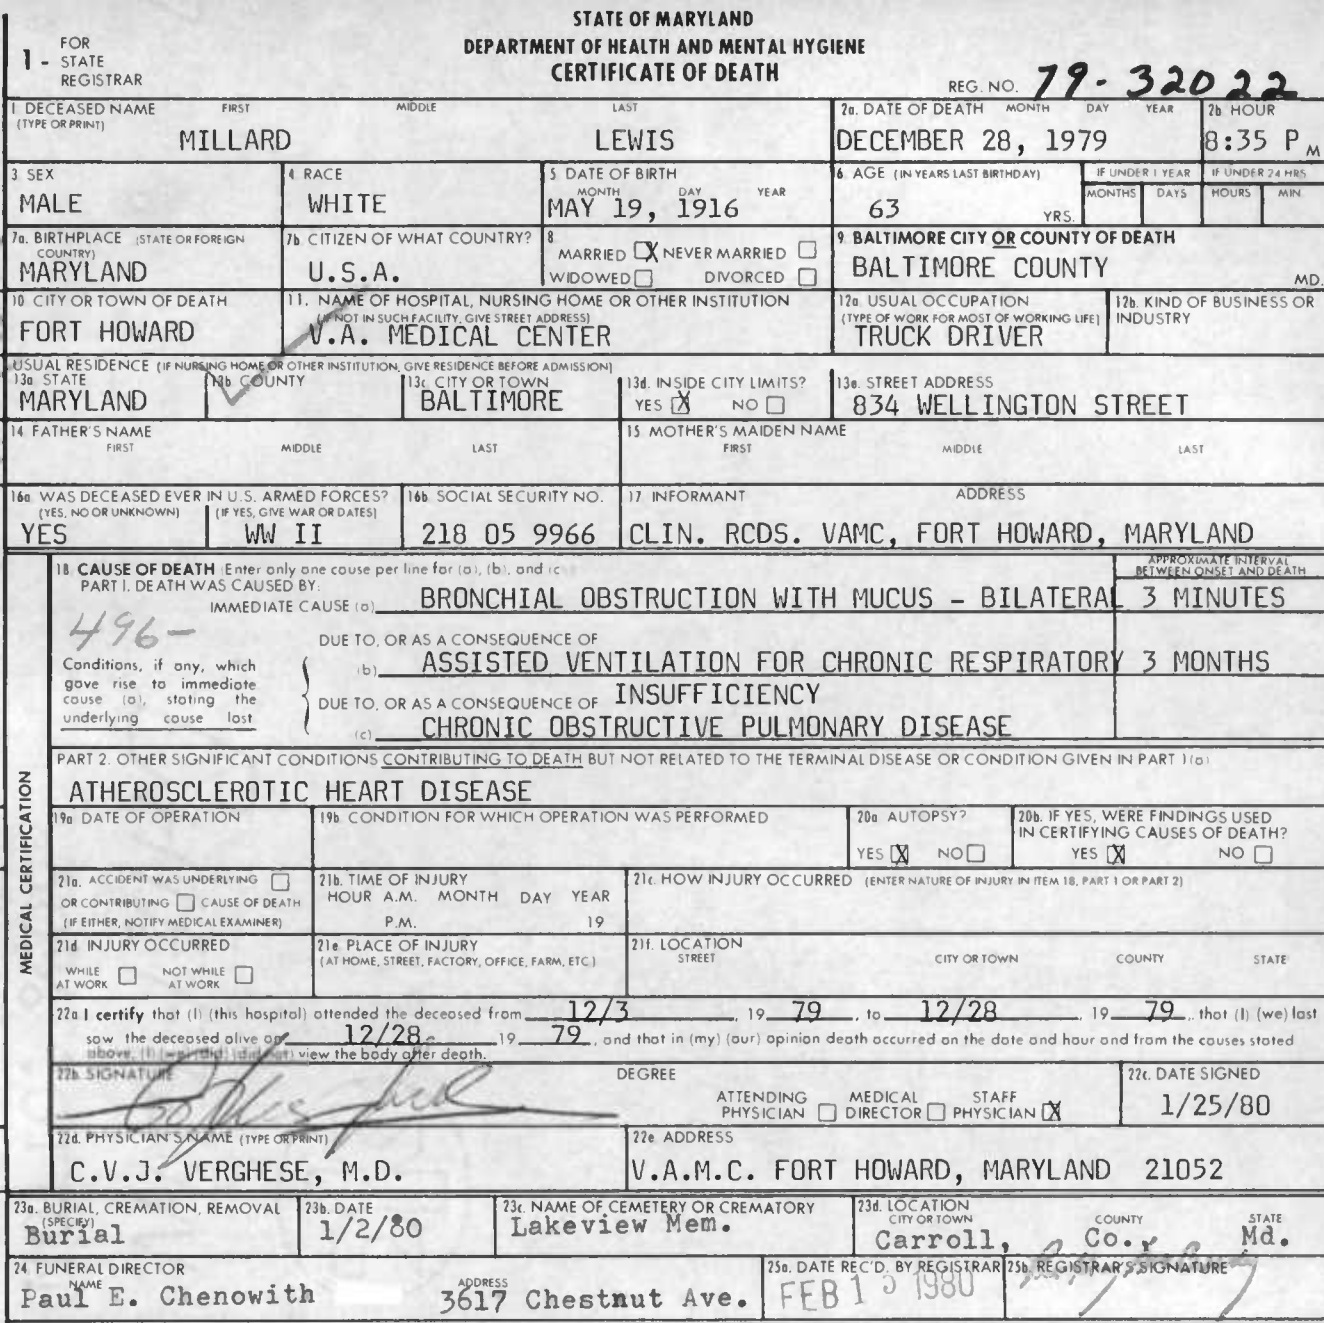 STATE OF MARYLAND
DEPARTMENT OF HEALTH AND MENTAL HYGIENE
CERTIFICATE OF DEATH
1 - FOR STATE REGISTRAR
REG. NO. 79-32022
1 DECEASED NAME FIRST MIDDLE LAST
(TYPE OR PRINT)
MILLARD LEWIS
2a. DATE OF DEATH MONTH DAY YEAR
DECEMBER 28, 1979
2b HOUR
8:35 P M
3 SEX
MALE
4 RACE
WHITE
5 DATE OF BIRTH
MONTH DAY YEAR
MAY 19, 1916
6 AGE (IN YEARS LAST BIRTHDAY)
63 YRS.
IF UNDER 1 YEAR
MONTHS DAYS
IF UNDER 24 HRS
HOURS MIN.
7a. BIRTHPLACE (STATE OR FOREIGN
COUNTRY)
MARYLAND
7b. CITIZEN OF WHAT COUNTRY?
U.S.A.
8
MARRIED X NEVER MARRIED
WIDOWED DIVORCED
9 BALTIMORE CITY OR COUNTY OF DEATH
BALTIMORE COUNTY
MD.
10 CITY OR TOWN OF DEATH
FORT HOWARD
11. NAME OF HOSPITAL, NURSING HOME OR OTHER INSTITUTION
(IF NOT IN SUCH FACILITY, GIVE STREET ADDRESS)
V.A. MEDICAL CENTER
12a. USUAL OCCUPATION
(TYPE OF WORK FOR MOST OF WORKING LIFE)
TRUCK DRIVER
12b. KIND OF BUSINESS OR
INDUSTRY
USUAL RESIDENCE (IF NURSING HOME OR OTHER INSTITUTION, GIVE RESIDENCE BEFORE ADMISSION)
13a STATE
MARYLAND
13b COUNTY
13c CITY OR TOWN
BALTIMORE
13d. INSIDE CITY LIMITS?
YES X NO
13e. STREET ADDRESS
834 WELLINGTON STREET
14 FATHER'S NAME
FIRST MIDDLE LAST
15 MOTHER'S MAIDEN NAME
FIRST MIDDLE LAST
16a WAS DECEASED EVER IN U.S. ARMED FORCES?
(YES, NO OR UNKNOWN) (IF YES, GIVE WAR OR DATES)
YES WW II
16b SOCIAL SECURITY NO.
218 05 9966
17 INFORMANT ADDRESS
CLIN. RCDS. VAMC, FORT HOWARD, MARYLAND
MEDICAL CERTIFICATION
18 CAUSE OF DEATH (Enter only one cause per line for (a), (b), and (c
PART I. DEATH WAS CAUSED BY:
APPROXIMATE INTERVAL
BETWEEN ONSET AND DEATH
IMMEDIATE CAUSE (a) BRONCHIAL OBSTRUCTION WITH MUCUS - BILATERAL 3 MINUTES
496-
Conditions, if any, which
gave rise to immediate
cause (a), stating the
underlying cause last
DUE TO, OR AS A CONSEQUENCE OF
(b) ASSISTED VENTILATION FOR CHRONIC RESPIRATORY 3 MONTHS
DUE TO, OR AS A CONSEQUENCE OF INSUFFICIENCY
(c) CHRONIC OBSTRUCTIVE PULMONARY DISEASE
PART 2. OTHER SIGNIFICANT CONDITIONS CONTRIBUTING TO DEATH BUT NOT RELATED TO THE TERMINAL DISEASE OR CONDITION GIVEN IN PART 1(a)
ATHEROSCLEROTIC HEART DISEASE
19a DATE OF OPERATION
19b CONDITION FOR WHICH OPERATION WAS PERFORMED
20a AUTOPSY?
YES X NO
20b. IF YES, WERE FINDINGS USED
IN CERTIFYING CAUSES OF DEATH?
YES X NO
21a. ACCIDENT WAS UNDERLYING
OR CONTRIBUTING CAUSE OF DEATH
(IF EITHER, NOTIFY MEDICAL EXAMINER)
21b. TIME OF INJURY
HOUR A.M. MONTH DAY YEAR
P.M. 19
21c. HOW INJURY OCCURRED (ENTER NATURE OF INJURY IN ITEM 18, PART 1 OR PART 2)
21d INJURY OCCURRED
WHILE AT WORK NOT WHILE AT WORK
21e PLACE OF INJURY
(AT HOME, STREET, FACTORY, OFFICE, FARM, ETC.)
21f. LOCATION
STREET CITY OR TOWN COUNTY STATE
22a I certify that (I) (this hospital) attended the deceased from 12/3, 19 79, to 12/28, 19 79, that (I) (we) last
saw the deceased alive on 12/28 19 79, and that in (my) (our) opinion death occurred on the date and hour and from the causes stated
above, (I) (we) (did) (did not) view the body after death.
22b. SIGNATURE
DEGREE
ATTENDING PHYSICIAN MEDICAL DIRECTOR STAFF PHYSICIAN X
22c. DATE SIGNED
1/25/80
22d. PHYSICIAN'S NAME (TYPE OR PRINT)
C.V.J. VERGHESE, M.D.
22e ADDRESS
V.A.M.C. FORT HOWARD, MARYLAND 21052
23a. BURIAL, CREMATION, REMOVAL
(SPECIFY)
Burial
23b. DATE
1/2/80
23c. NAME OF CEMETERY OR CREMATORY
Lakeview Mem.
23d. LOCATION
CITY OR TOWN COUNTY STATE
Carroll, Co., Md.
24 FUNERAL DIRECTOR
NAME ADDRESS
Paul E. Chenowith 3617 Chestnut Ave.
25a. DATE REC'D. BY REGISTRAR
FEB 1 1980
25b. REGISTRAR'S SIGNATURE